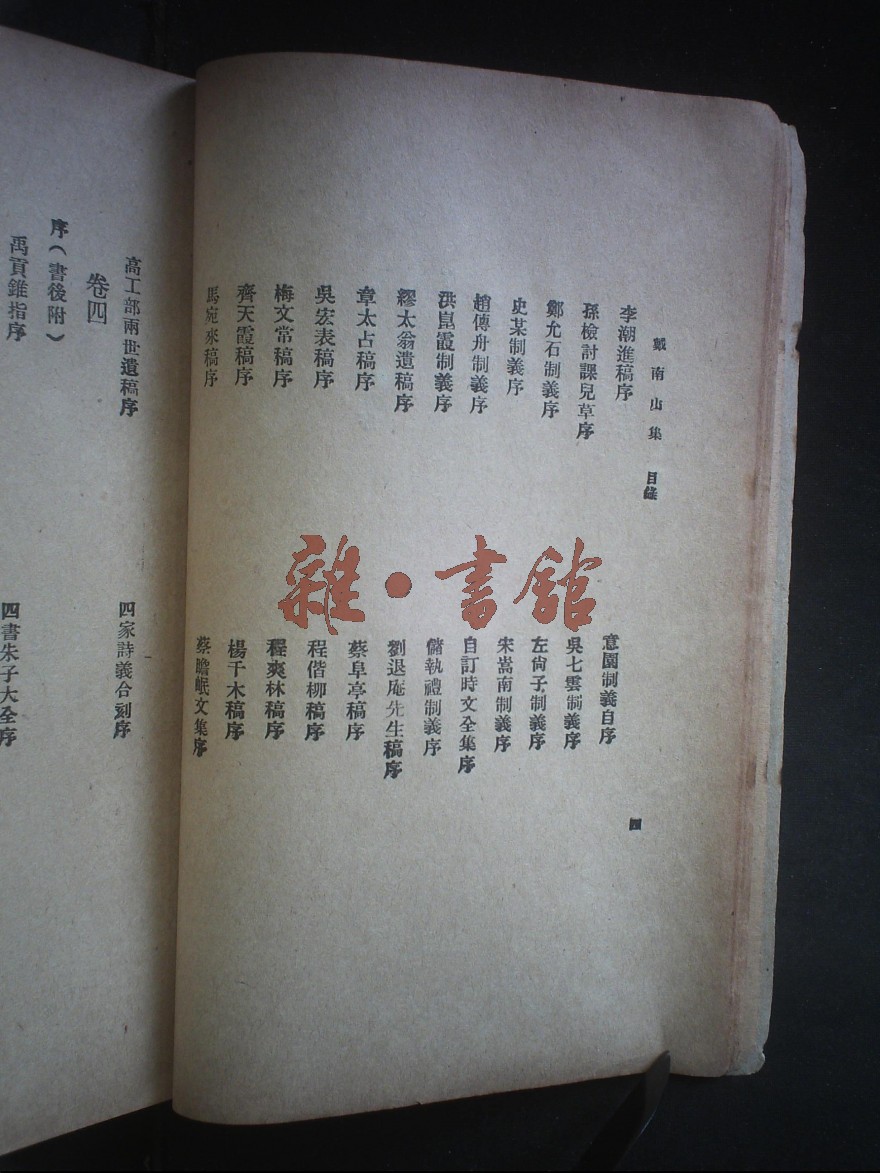 戴南山集 目錄
李潮進稿序
意園制義自序
孫檢討課兒草序
吳七雲制義序
鄭允石制義序
左尙子制義序
史某制義序
宋嵩南制義序
趙傳舟制義序
自訂時文全集序
洪崑霞制義序
儲執禮制義序
繆太翁遺稿序
劉退庵先生稿序
章太占稿序
蔡阜亭稿序
吳宏表稿序
程偕柳稿序
梅文常稿序
程爽林稿序
齊天霞稿序
楊千木稿序
馬宛來稿序
蔡瞻岷文集序
四
高工部兩世遺稿序
四家詩義合刻序
卷四
序（書後附）
禹貢錐指序
四書朱子大全序
雜·書館